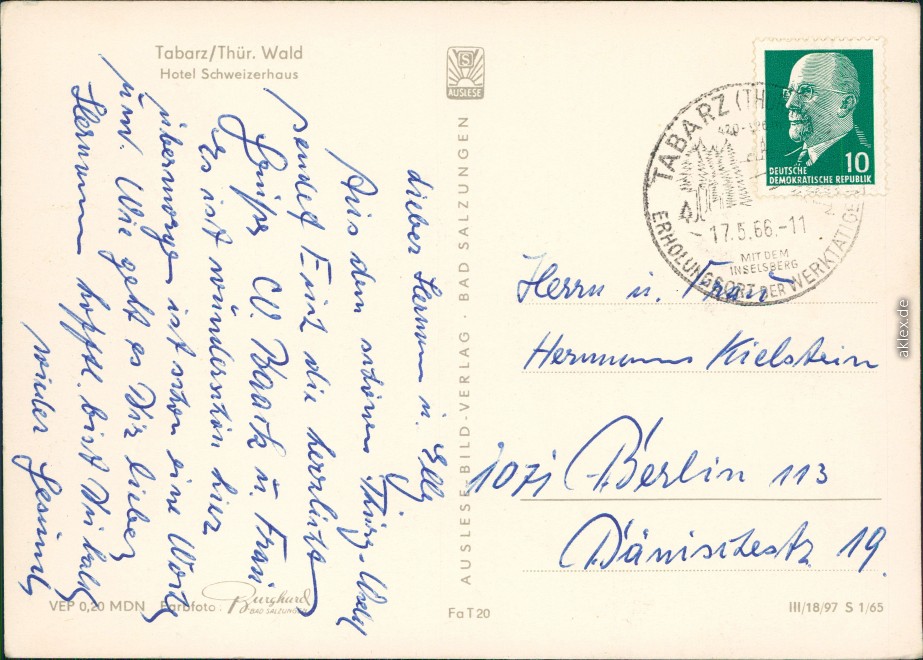 Tabarz/Thür. Wald
Hotel Schweizerhaus
AUSLESE
Lieber Hermann u. Elly
Aus dem schönen Thürg. Wald
sendet Euch die herzlichsten
Grüße W. Baack u. Frau
es ist wunderschön hier
übermorgen ist schon eine Woche
um. Wie geht es Dir lieber
Hermann hofftl. bist Du bald
wieder Gesund
AUSLESE-BILD-VERLAG · BAD SALZUNGEN
TABARZ (THÜR
17.5.66.-11
MIT DEM
INSELSBERG
ERHOLUNGSORT DER WERKTÄTIGE
10
DEUTSCHE
DEMOKRATISCHE REPUBLIK
Herrn u. Frau
Hermann Kielstein
1071 Berlin 113
Dänischestr. 19.
VEP 0,20 MDN Farbfoto: Burghard
BAD SALZUNGEN
Fa T 20
III/18/97 S 1/65
aklex.de